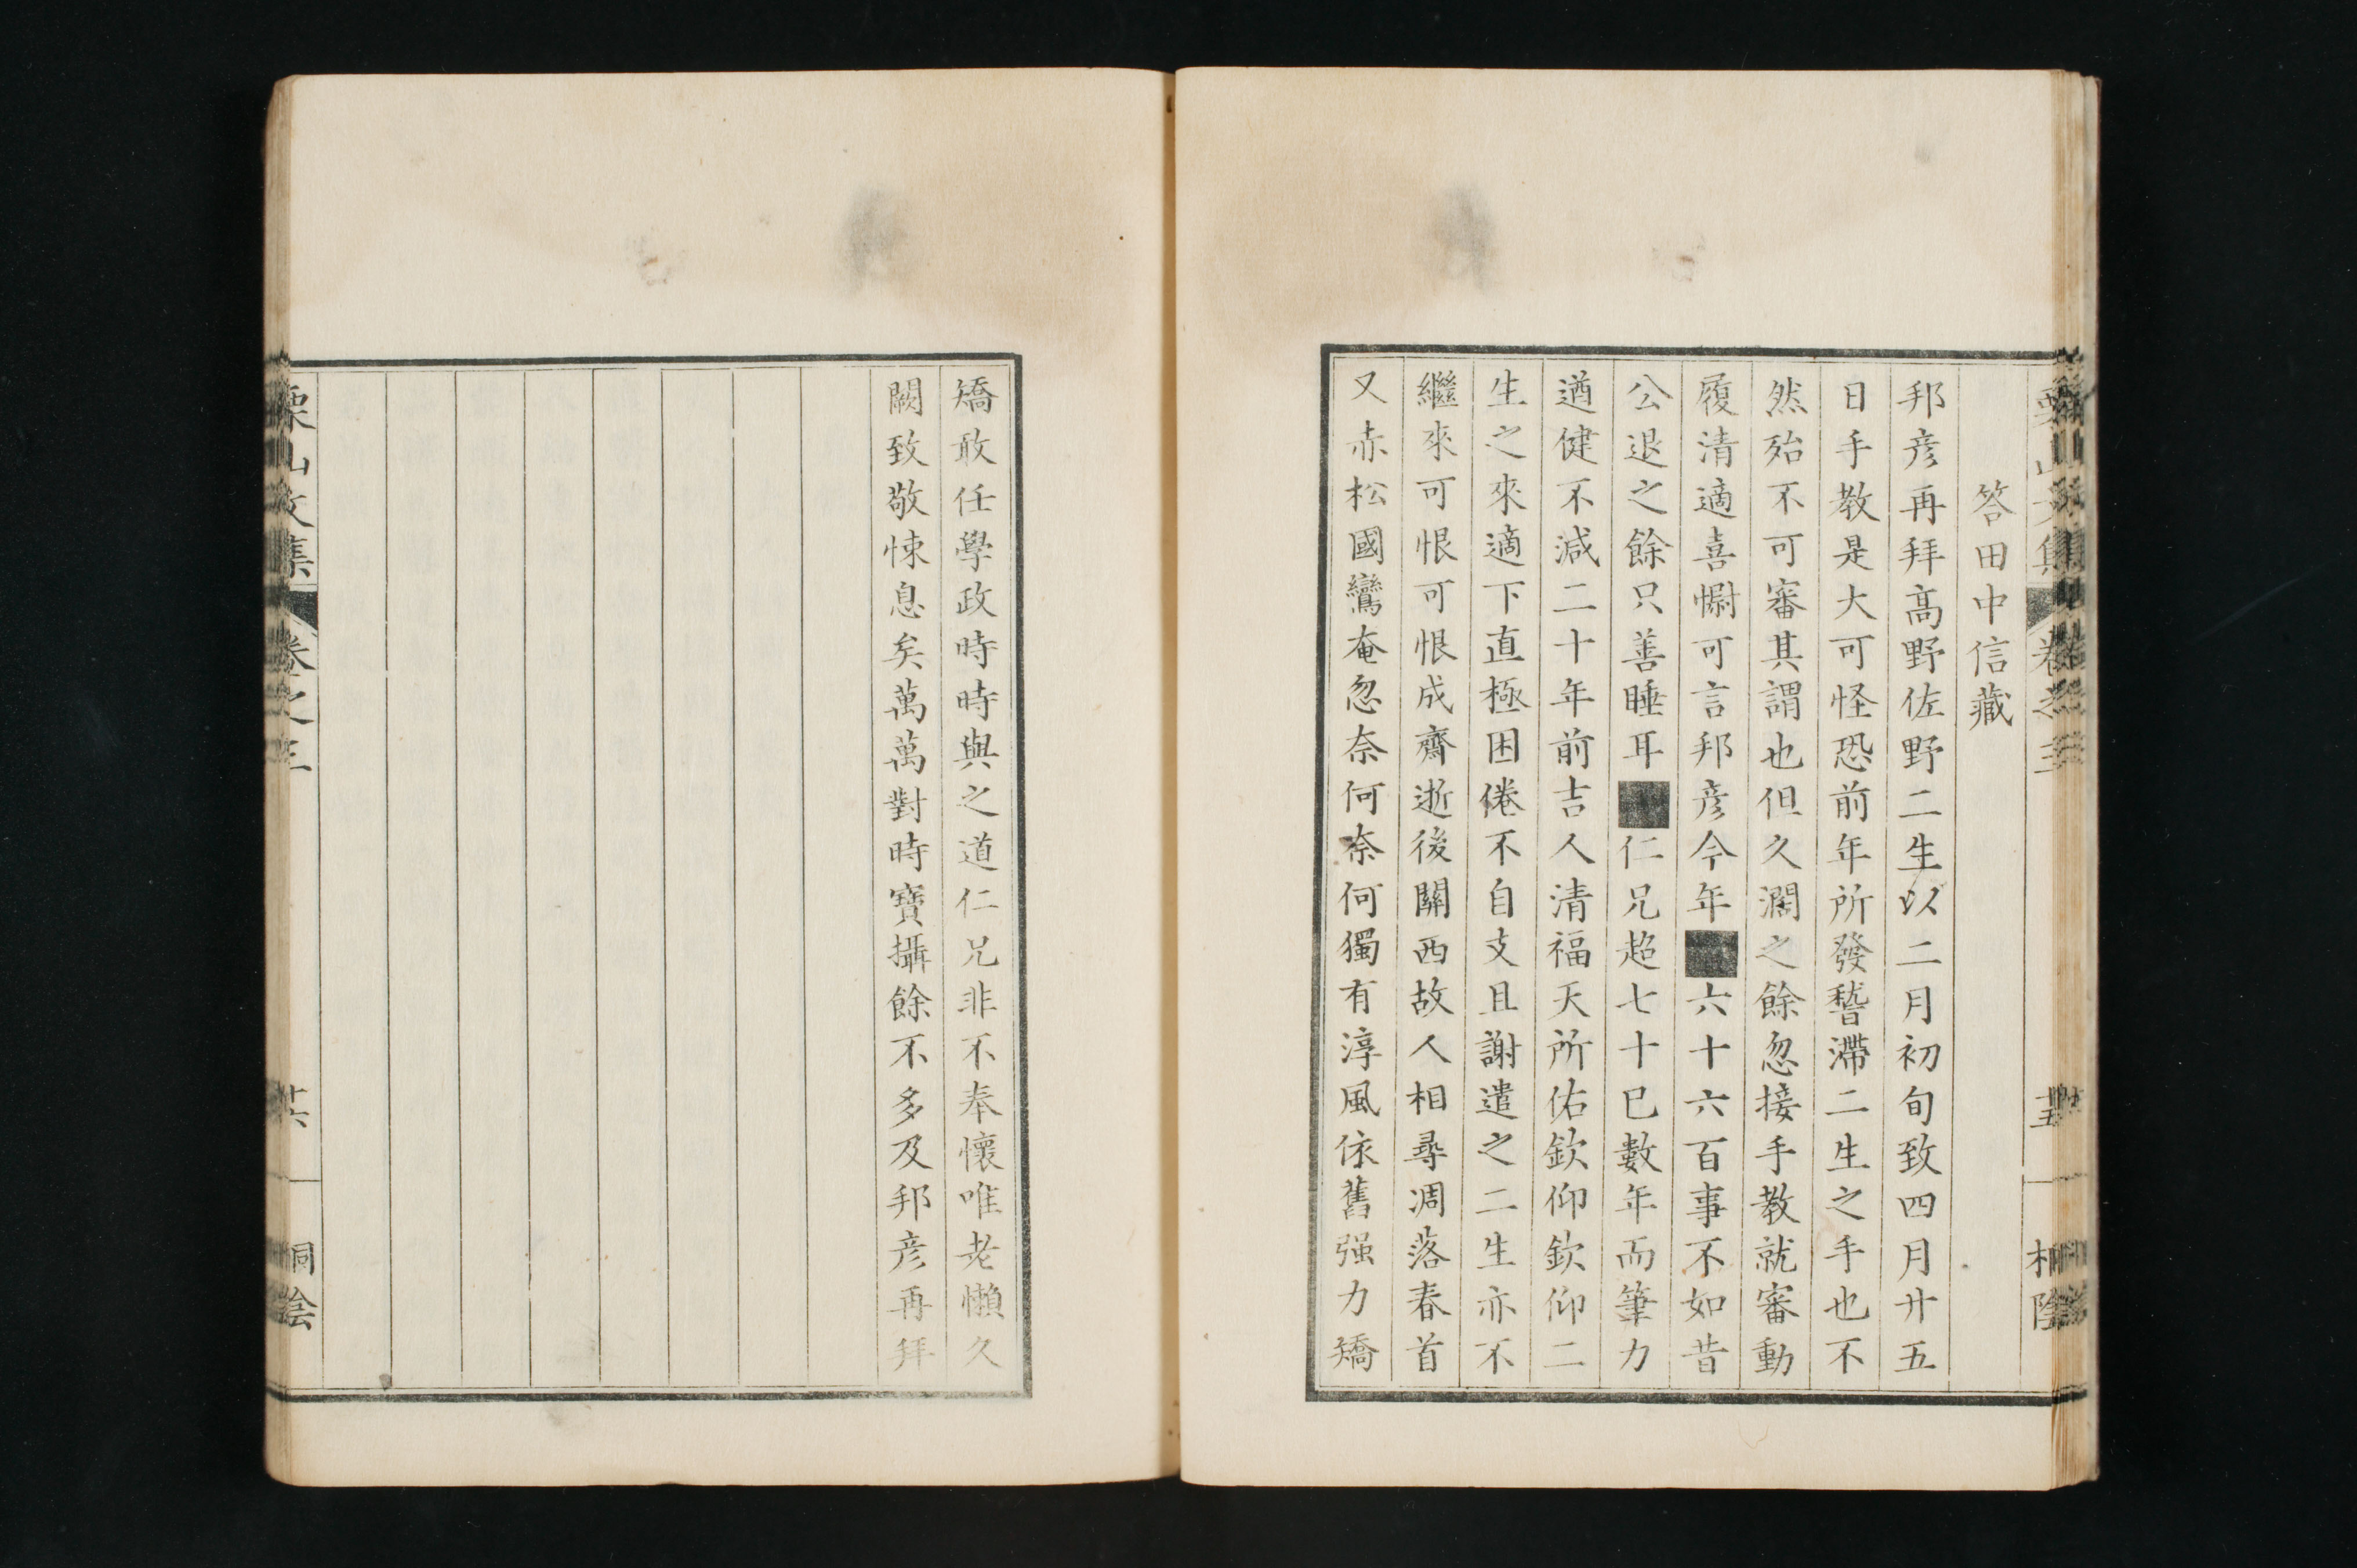 答田中信藏
邦彦再拜高野佐野二生以二月初旬致四月廿五
日手教是大可怪恐前年所發稽滯二生之手也不
然殆不可審其謂也但久濶之餘忽接手教就審動
履清適喜慰可言邦彦今年■六十六百事不如昔
公退之餘只善睡耳■仁兄超七十巳數年而筆力
遒健不減二十年前吉人清福天所佑欽仰欽仰二
生之來適下直極困倦不自支且謝遣之二生亦不
繼來可恨可恨成齋逝後關西故人相尋凋落春首
又赤松國鸞奄忽奈何奈何獨有淳風依舊强力矯
矯敢任學政時時與之道仁兄非不奉懷唯老懶久
闕致敬悚息矣萬萬對時寶攝餘不多及邦彦再拜
栗山文集 卷之三 廿六 桐陰